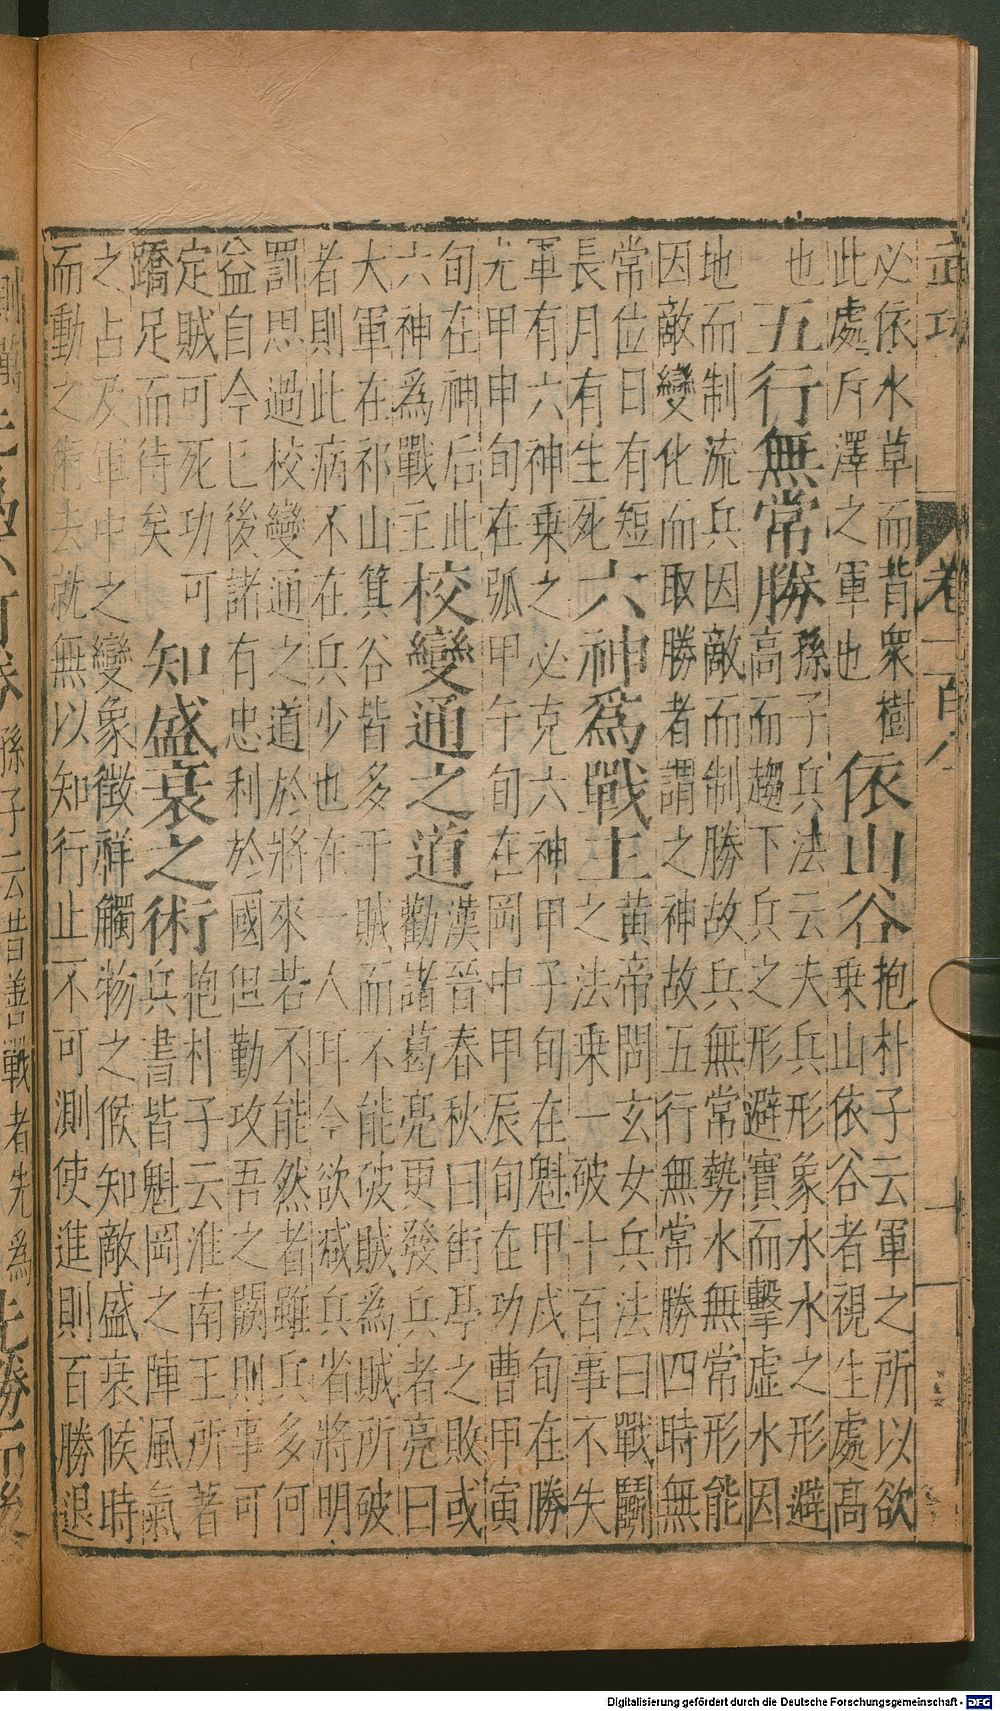 武功 卷一百八 十一
必依水草而背衆樹
此處斥澤之軍也
依山谷
抱朴子云軍之所以欲
乗山依谷者視生處高
也
五行無常勝
孫子兵法云夫兵形象水水之形避
高而趨下兵之形避實而擊虛水因
地而制流兵因敵而制勝故兵無常勢水無常形能
因敵變化而取勝者謂之神故五行無常勝四時無
常位日有短
長月有生死
六神爲戰主
黄帝問玄女兵法曰戰鬬
之法乗一破十百事不失
軍有六神乗之必克六神甲子旬在魁甲戌旬在勝
光甲申旬在弧甲午旬在岡中甲辰旬在功曹甲寅
旬在神后此
六神爲戰主
校變通之道
漢晉春秋曰街亭之敗或
勸諸葛亮更發兵者亮曰
大軍在祁山箕谷皆多于賊而不能破賊為賊所破
者則此病不在兵少也在一人耳今欲減兵省將明
罰思過校變通之道於將來若不能然者雖兵多何
益自今已後諸有忠利於國但勤攻吾之闕則事可
定賊可死功可
蹻足而待矣
知盛衰之術
抱朴子云淮南王所著
兵書皆魁岡之陣風氣
之占及軍中之變象徵祥觸物之候知敵盛衰候時
而動之術去就無以知行止不可測使進則百勝退
孫子云昔善戰者先爲
Digitalisierung gefördert durch die Deutsche Forschungsgemeinschaft - DFG